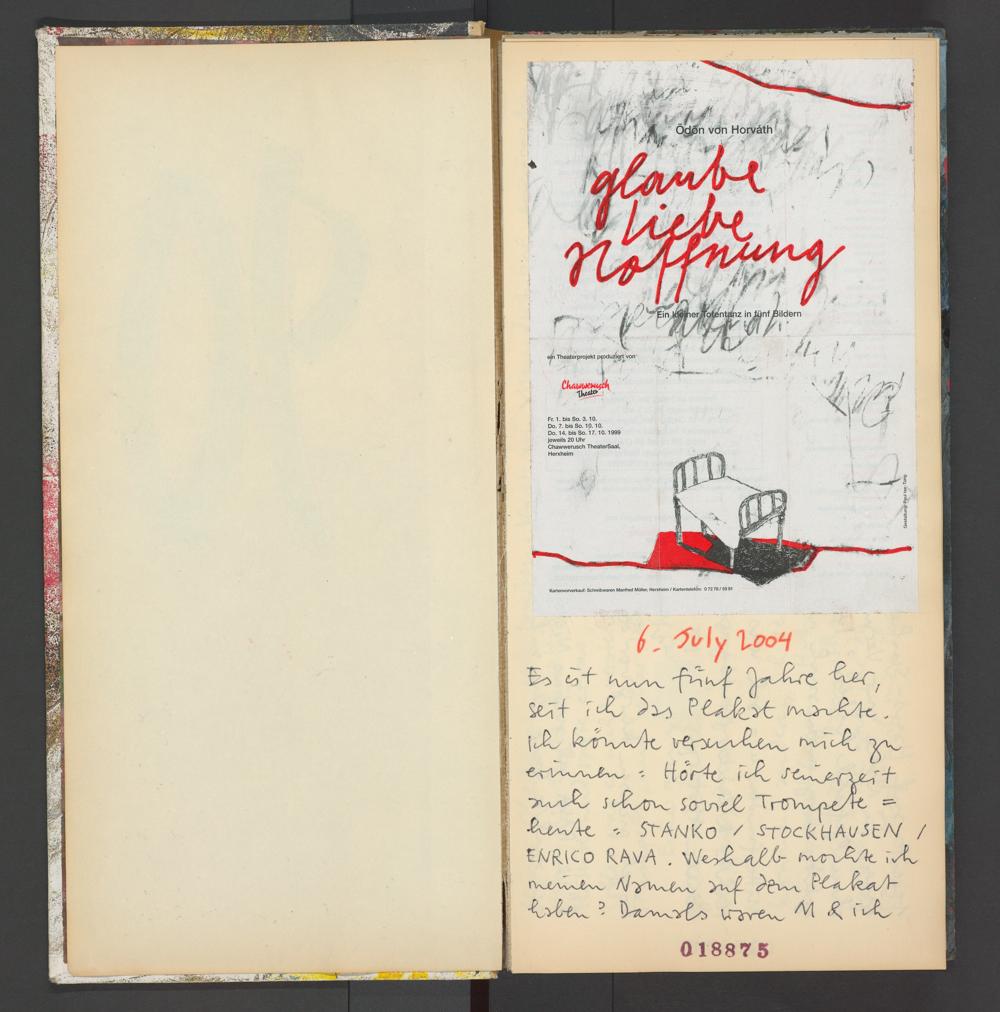 Ödön von Horváth
glaube
liebe
Hoffnung
Ein kleiner Totentanz in fünf Bildern
ein Theaterprojekt produziert von
Chawwerusch
Theater
Fr. 1. bis So. 3. 10.
Do. 7. bis So. 10. 10.
Do. 14. bis So. 17. 10. 1999
jeweils 20 Uhr
Chawwerusch TheaterSaal,
Herxheim
Kartenvorverkauf: Schreibwaren Manfred Müller, Herxheim / Kartentelefon:
6. July 2004
Es ist nun fünf Jahre her,
seit ich das Plakat machte.
Ich könnte versuchen mich zu
erinnen : Hörte ich seinerzeit
auch schon soviel Trompete =
heute : STANKO / STOCKHAUSEN /
ENRICO RAVA. Weshalb mochte ich
meinen Namen auf dem Plakat
haben? Damals waren M & ich
018875